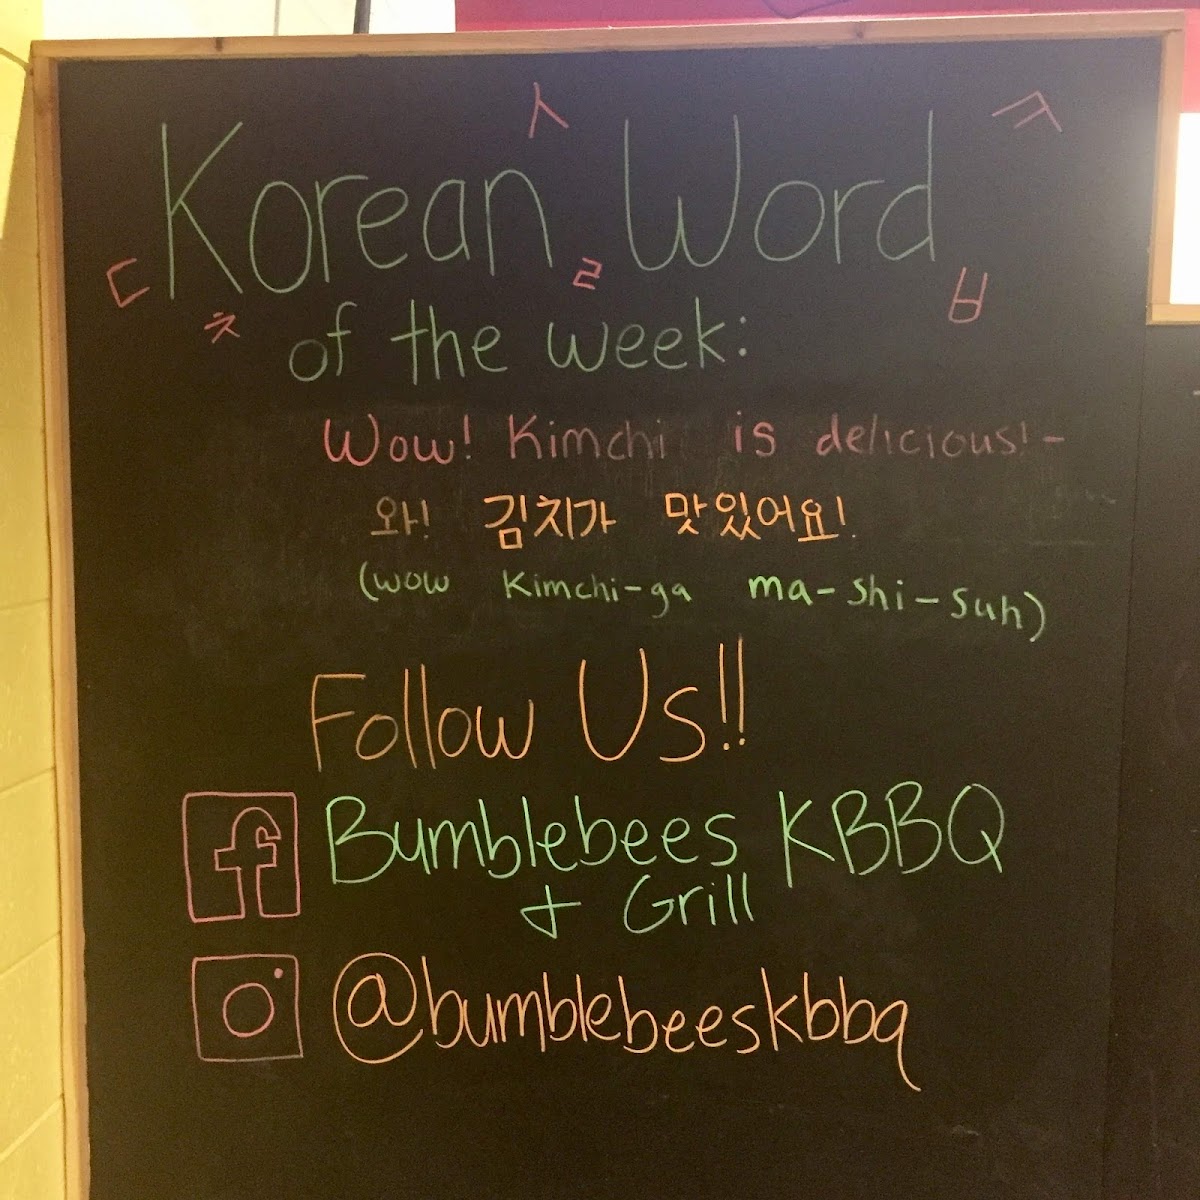 ㅅ ㅋ
Korean Word
ㄷ ㅊ ㄹ ㅂ
of the week:
Wow! Kimchi is delicious! -
와! 김치가 맛있어요!
(wow Kimchi-ga ma-shi-suh)
Follow Us!!
f Bumblebees KBBQ
+ Grill
@bumblebeeskbbq